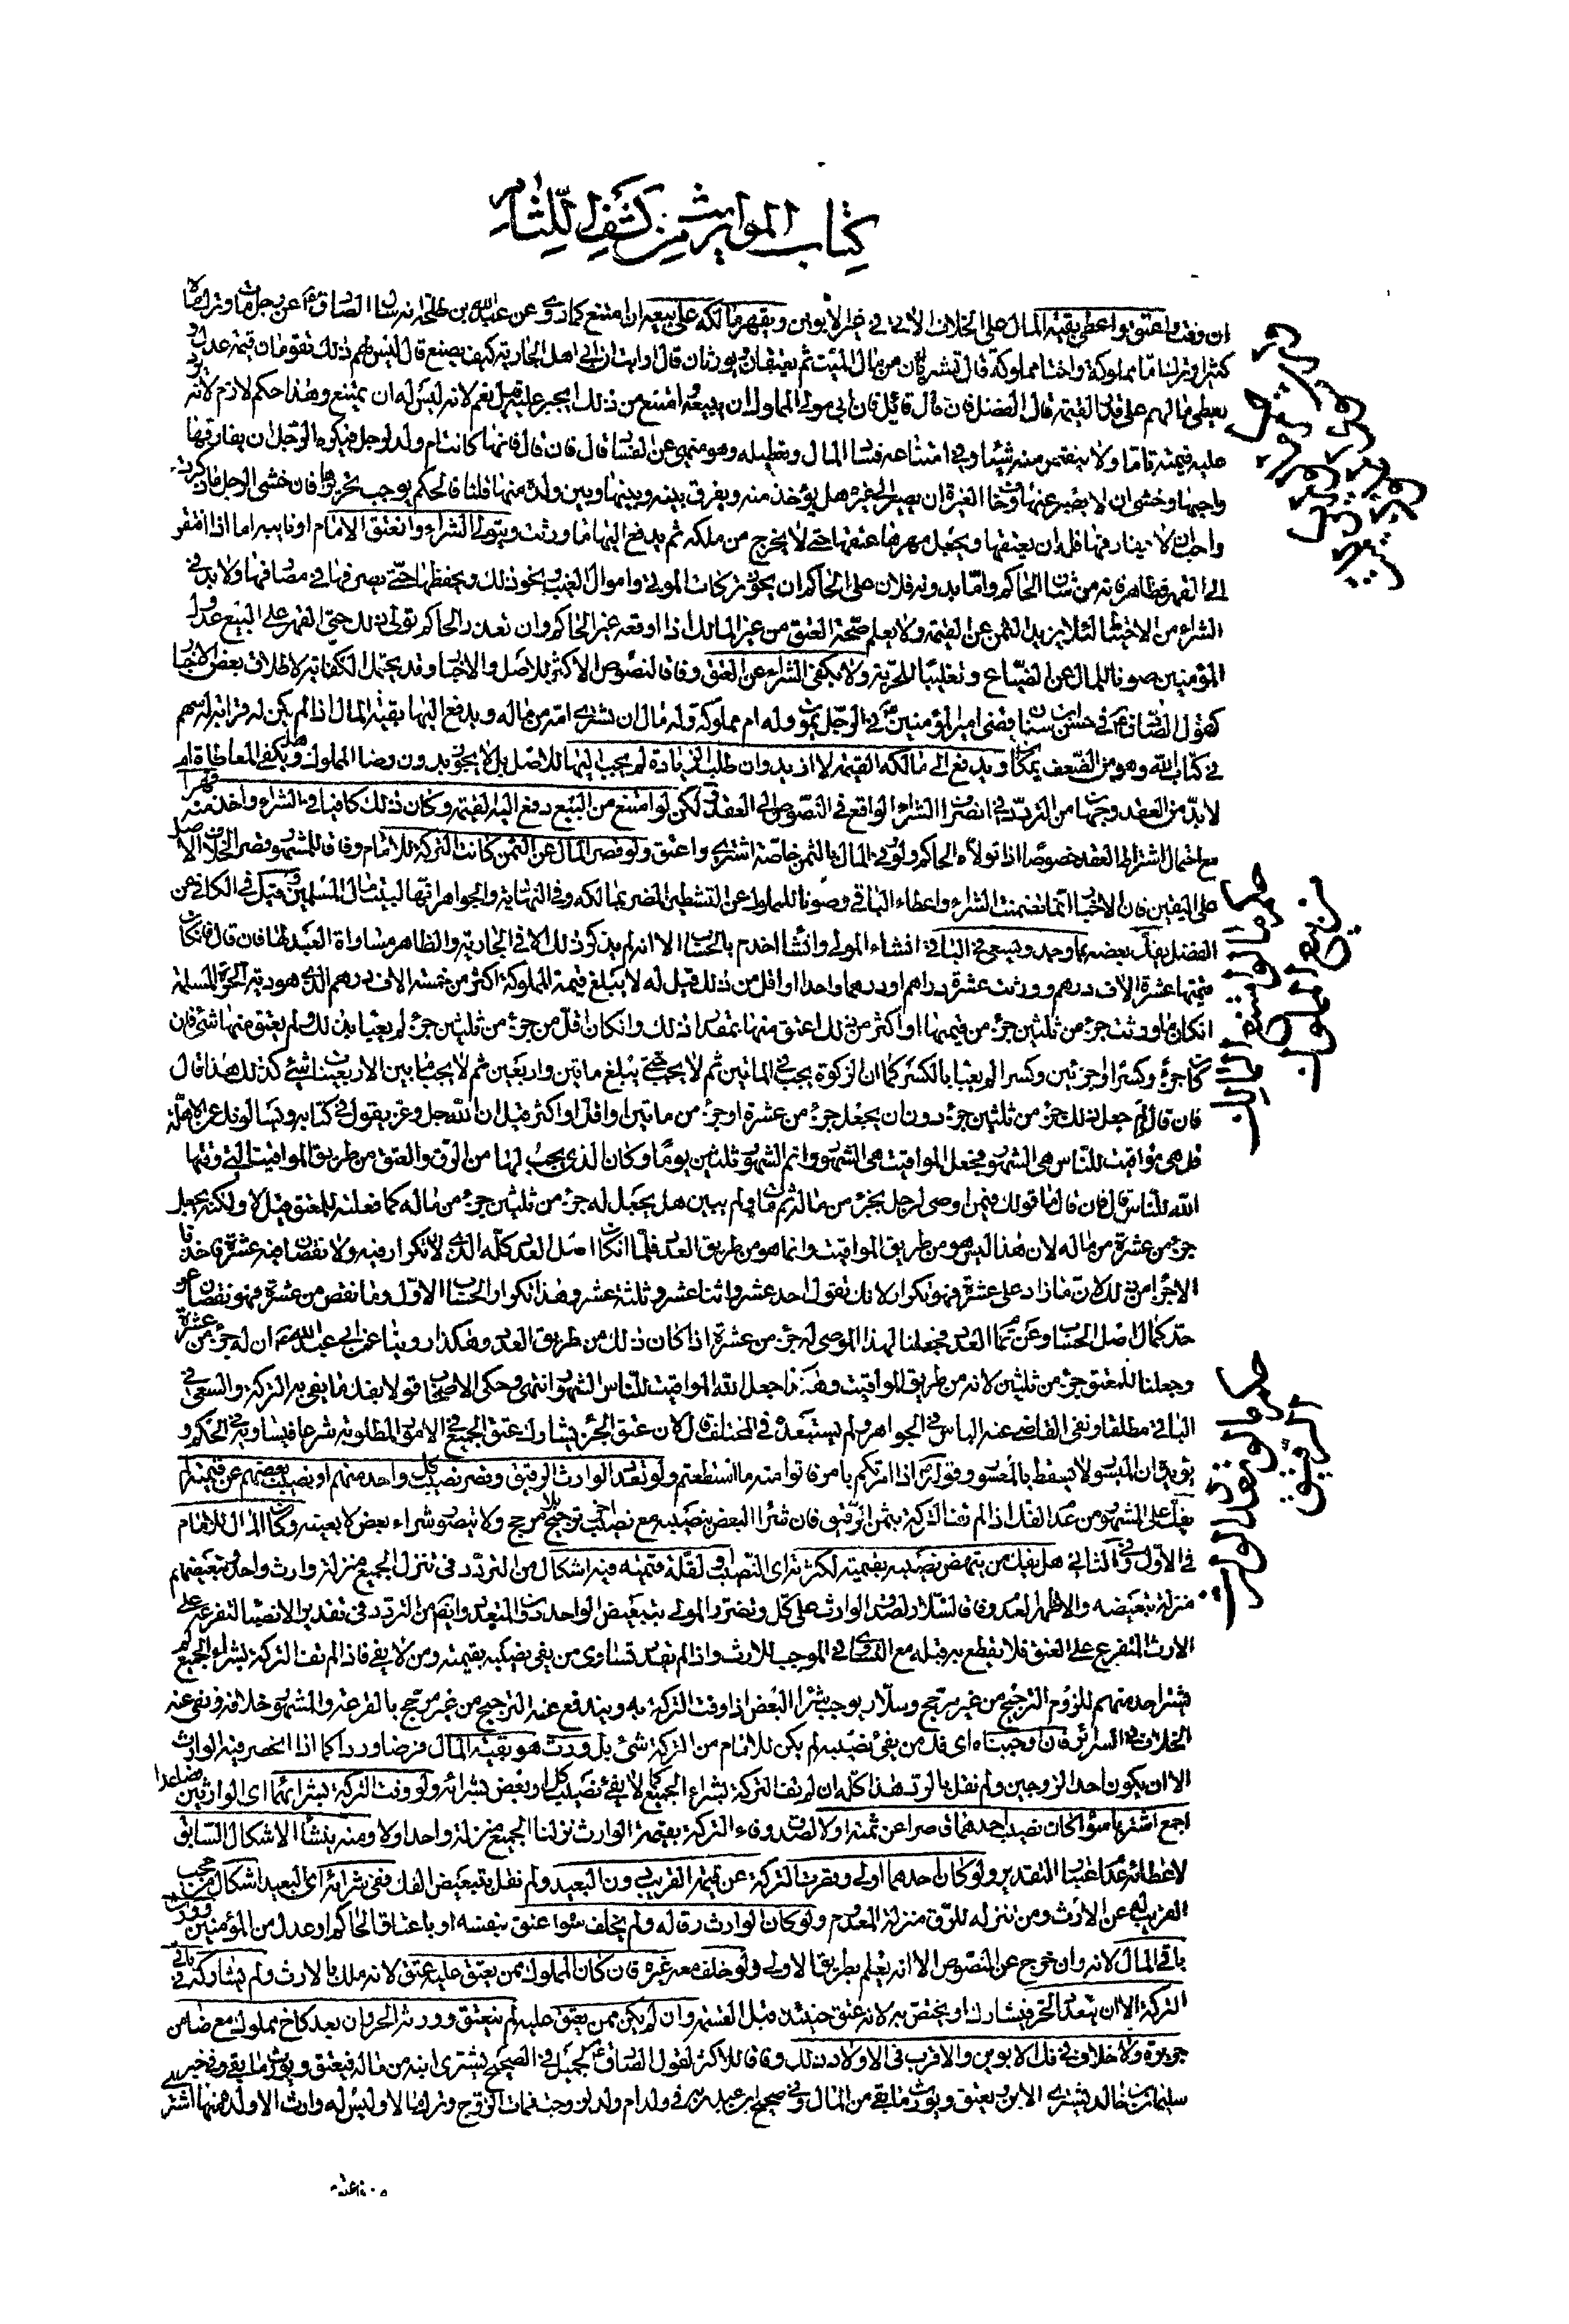 كتاب المواريث من كشف اللثام
ان وفت واعتق واعطى بقية المال على الخلاف الاتى فى غير الابوين ويقهر مالكه على بيعه ان امتنع كما روى عن عبد الله بن طلحة انه سئل الصادق عن رجل مات وترك مالا
كثيرا وترك اما مملوكة واختا مملوكة قال تشتريان من مال الميت ثم يعتقان ويورثان قال ارايت ان ابى اهل الجارية كيف يصنع قال ليس لهم ذلك تقومان قيمة عدل
يعطى مالهم على قدر القيمة قال الفضل فان قال قائل فان ابى مولى المملوك ان يبيعه وامتنع من ذلك ايجبر عليه قيل نعم لانه ليس له ان يمتنع وهذا حكم لازم لانه
عليه قيمته تاما ولا ينقص منه شيئا وفى امتناعه فساد المال وتعطيله وهو منهى عن الفساد قال فان قال فانها كانت ام ولد لرجل فيكره الرجل ان يفارقها
واحبها وخشى ان لا يصبر عنها وخاف الغيرة ان يصير الى غيره هل يؤخذ منه ويفرق بينه وبينها وبين ولده منها قلنا فالحكم يوجب تحريرها فان خشى الرجل ما ذكرت
واحب ان لا يفارقها فله ان يعتقها ويجعل مهرها عتقها حتى لا يخرج من ملكه ثم يدفع اليها ما ورثت ويتولى الشراء والعتق الامام او نايبه اما اذا افتقر
الى القهر فظاهر فانه من شان الحاكم واما بدونه فلان على الحاكم ان يحوى تركات الموتى واموال الغيب ونحو ذلك ويحفظها حتى يصرفها فى مصارفها ولا بد فى
الشراء من الاحتياط لئلا يزيد الثمن عن القيمة ولا يعلم صحة العتق من غير المالك اذا اوقعه غير الحاكم وان تعذر الحاكم تولى ذلك حتى القهر على البيع عدول
المؤمنين صونا للمال عن الضياع وتغليبا للحرية ولا يكفى الشراء عن العتق وفاقا لنصوص الاكثر للاصل والاخبار وقد يحتمل الكفاية لاطلاق بعض الاخبار
كقول الصادق فى حسن ابن سنان قضى امير المؤمنين فى الرجل يموت وله ام مملوكة وله مال ان تشترى امه من ماله ويدفع اليها بقية المال اذا لم يكن له قرابة له سهم
فى كتاب الله وهو من الضعف بمكان ويدفع الى مالكه القيمة لا ازيد وان طلب الزيادة لم يجب اليها للاصل بل لا يجوز بدون رضا المملوك وهل يكفى المعاطاة ام
لا بد من العقد وجهان من التردد فى انصراف الشراء الواقع فى النصوص الى العقد ولكن لو امتنع من البيع دفع اليه القيمة وكان ذلك كافيا فى الشراء واخذ منه قهرا
مع احتمال اشتراط العقد خصوصا اذا تولاه الحاكم ولو فى المال بالثمن خاصة اشترى واعتق ولو قصر المال عن الثمن كانت التركة للامام وفاقا للمشهور قصرا لخلاف الاصل
على اليقين فان الاخبار انما تضمنت الشراء واعطاء الباقى وصونا للمملوك عن التشطير المضر بمالكه وفى النهاية والجواهر انها لبيت مال المسلمين وقيل فى الكافى عن
الفضل يفك بعضه بما وجد ويسعى فى الباقى ان شاء المولى وان شاء اخدم بالحساب الا انه لم يذكر ذلك الا فى الجارية والظاهر مساواة العبد لها فان قال فان كان
قيمتها عشرة الاف درهم وورثت عشرة دراهم او درهما واحدا او اقل من ذلك قيل له لا يبلغ قيمة المملوكة اكثر من خمسة الاف درهم الذى هو دية الحرة المسلمة
ان كان ما ورثت جزء من ثلثين جزء من قيمتها او اكثر من ذلك اعتق منها بمقدار ذلك وان كان اقل من جزء من ثلثين جزء لم يعبأ بذلك ولم يعتق منها شئ فان
كان جزء وكسرا او جزئين وكسرا لم يعبأ بالكسر كما ان الزكوة يجب فى الماتين ثم لا يجب حتى يبلغ ماتين واربعين ثم لا يجب ما بين الاربعينات شئ كذلك هذا قال
فان قال لم جعلت ذلك جزء من ثلثين جزء دون ان يجعل جزء من عشرة او جزء من ماتين او اقل او اكثر قيل ان الله جل وعز يقول فى كتابه ويسئلونك عن الاهلة
قل هى مواقيت للناس هى الشهور فجعل المواقيت هى الشهور واتم الشهور ثلثين يوما وكان الذى يجب لها من الرق والعتق من طريق المواقيت التى وقتها
الله للناس قال فان قال فما قولك فيمن اوصى لرجل بجزء من ماله ثم مات ولم يبين هل يجعل له جزء من ثلثين جزء من ماله كما فعلته للمعتق قيل لا ولكنه يجعل
جزء من عشرة من ماله لان هذا ليس هو من طريق المواقيت وانما هو من طريق العدد فلما ان كان اصل العدد كله الذى لا تكرار فيه ولا نقصان فيه عشرة فاخذنا
الاجزاء من ذلك لان ما زاد على عشرة فهو تكرار لانك تقول احد عشر واثنا عشر وثلثة عشر وهذا تكرار الحساب الاول وما نقص من عشرة فهو نقصان عن
حد كمال اصل الحساب وعن تمام العدد فجعلنا لهذا الموصى له جزء من عشرة اذا كان ذلك من طريق العدد وهكذا روينا عن ابى عبد الله ان له جزء من عشرة
وجعلنا للمعتق جزء من ثلثين لانه من طريق المواقيت وهكذا جعل الله المواقيت للناس الشهور انتهى وحكى الاصحاب قولا بفك ما يفى به التركة والسعى فى
الباقى مطلقا ونفى القاضى عنه الباس فى الجواهر ولم يستبعد فى المختلف قال لان عتق الجزء يشارك عتق الجميع فى الامور المطلوبة شرعا فيساويه فى الحكم و
يؤيده ان الميسور لا يسقط بالمعسور وقوله اذا امرتكم بامر فاتوا منه ما استطعتم ولو تعدد الوارث الرقيق وقصر نصيب كل واحد منهم او نصيب بعضهم عن قيمته لم
يفك على المشهور من عدم الفك اذا لم تف التركة بثمن الرقيق فان شراء البعض بنصيبه مع نصيب اخر ترجيح بلا مرجح ولا يتصور شراء بعض لا بعينه وكان المال للامام
فى الاول وفى الثانى هل يفك من ينهض نصيبه بقيمته لكثرته اى النصيب او لقلة قيمته فيه اشكال من التردد فى تنزل الجميع منزلة وارث واحد فتبعيضهم
منزلة تبعيضه والاظهر العدم وفاقا لسلار لصدق الوارث على كل وتضرر المولى بتبعيض الواحد دون المتعدد وايضا من التردد فى تقدير الانصباء المتفرعة على
الارث المتفرع على العتق فلا يقطع به قبله مع التساوى فى الموجب للارث واذا لم يقدر تساوى من يفى نصيبه بقيمته ومن لا يفى فاذا لم تف التركة بشراء الجميع لم
يشتر احد منهم للزوم الترجيح من غير مرجح وسلار يوجب شراء البعض اذا وفت التركة به ويندفع عنه الترجيح من غير مرجح بالقرعة والمشهور خلافه ونفى عنه
الخلاف فى السرائر فان اوجبناه اى فك من يفى نصيبه لم يكن للامام من التركة شئ بل ورث هو بقية المال فرضا وردا كما اذا انحصر فيه الوارث
الا ان يكون احد الزوجين ولم نقل بالرد هذا كله ان لم تف التركة بشراء الجميع كما لا يفى نصيب كل او بعض بشرائه ولو وفت التركة بشرائهما اى الوارثين فصاعدا
اجمع اشتريا سواء كان نصيب احدهما قاصرا عن ثمنه او لا لصدق وفاء التركة بقيمة الوارث نزلنا الجميع منزلة واحد او لا ومنه ينشا الاشكال السابق
لاعطائه عدم اعتبار التقدير ولو كان احدهما اولى وقصرت التركة عن قيمة القريب دون البعيد ولم نقل بتبعيض الفك ففى شرائه اى البعيد اشكال من حجب
القريب له عن الارث ومن تنزله للرق منزلة المعدوم ولو كان الوارث رقا له ولم يخلف سواه عتق بنفسه او باعتاق الحاكم او عدل من المؤمنين وورث
باقى المال لانه وان خرج عن النصوص الا انه يعلم بطريق الاولى ولو خلف معه غيره فان كان المملوك ممن يعتق عليه عتق لانه ملك بالارث ولم يشاركه فى باقى
التركة الا ان يتعدد الحر فيشارك او يختص به لانه عتق حينئذ قبل القسمة وان لم يكن ممن يعتق عليه لم ينعتق وورثه الحر وان بعد كاخ مملوك مع ضامن
جريرة ولا خلاف فى فك الابوين والاقرب فى الاولاد ذلك وفاقا للاكثر لقول الصادق لجميل فى الصحيح يشترى ابنه من ماله فيعتق ويورث ما بقى وفى خبر
سليمان بن خالد يشترى الابن يعتق ويورث ما بقى من المال وفى صحيح ابن عبد ربه فى ولد ام ولد لو وجب فمات الزوج وترك مالا وليس له وارث الا ولده منها اشترى
حكم ما لو امتنع مالك
حكم ما لو تعدد الوارث
الرقيق